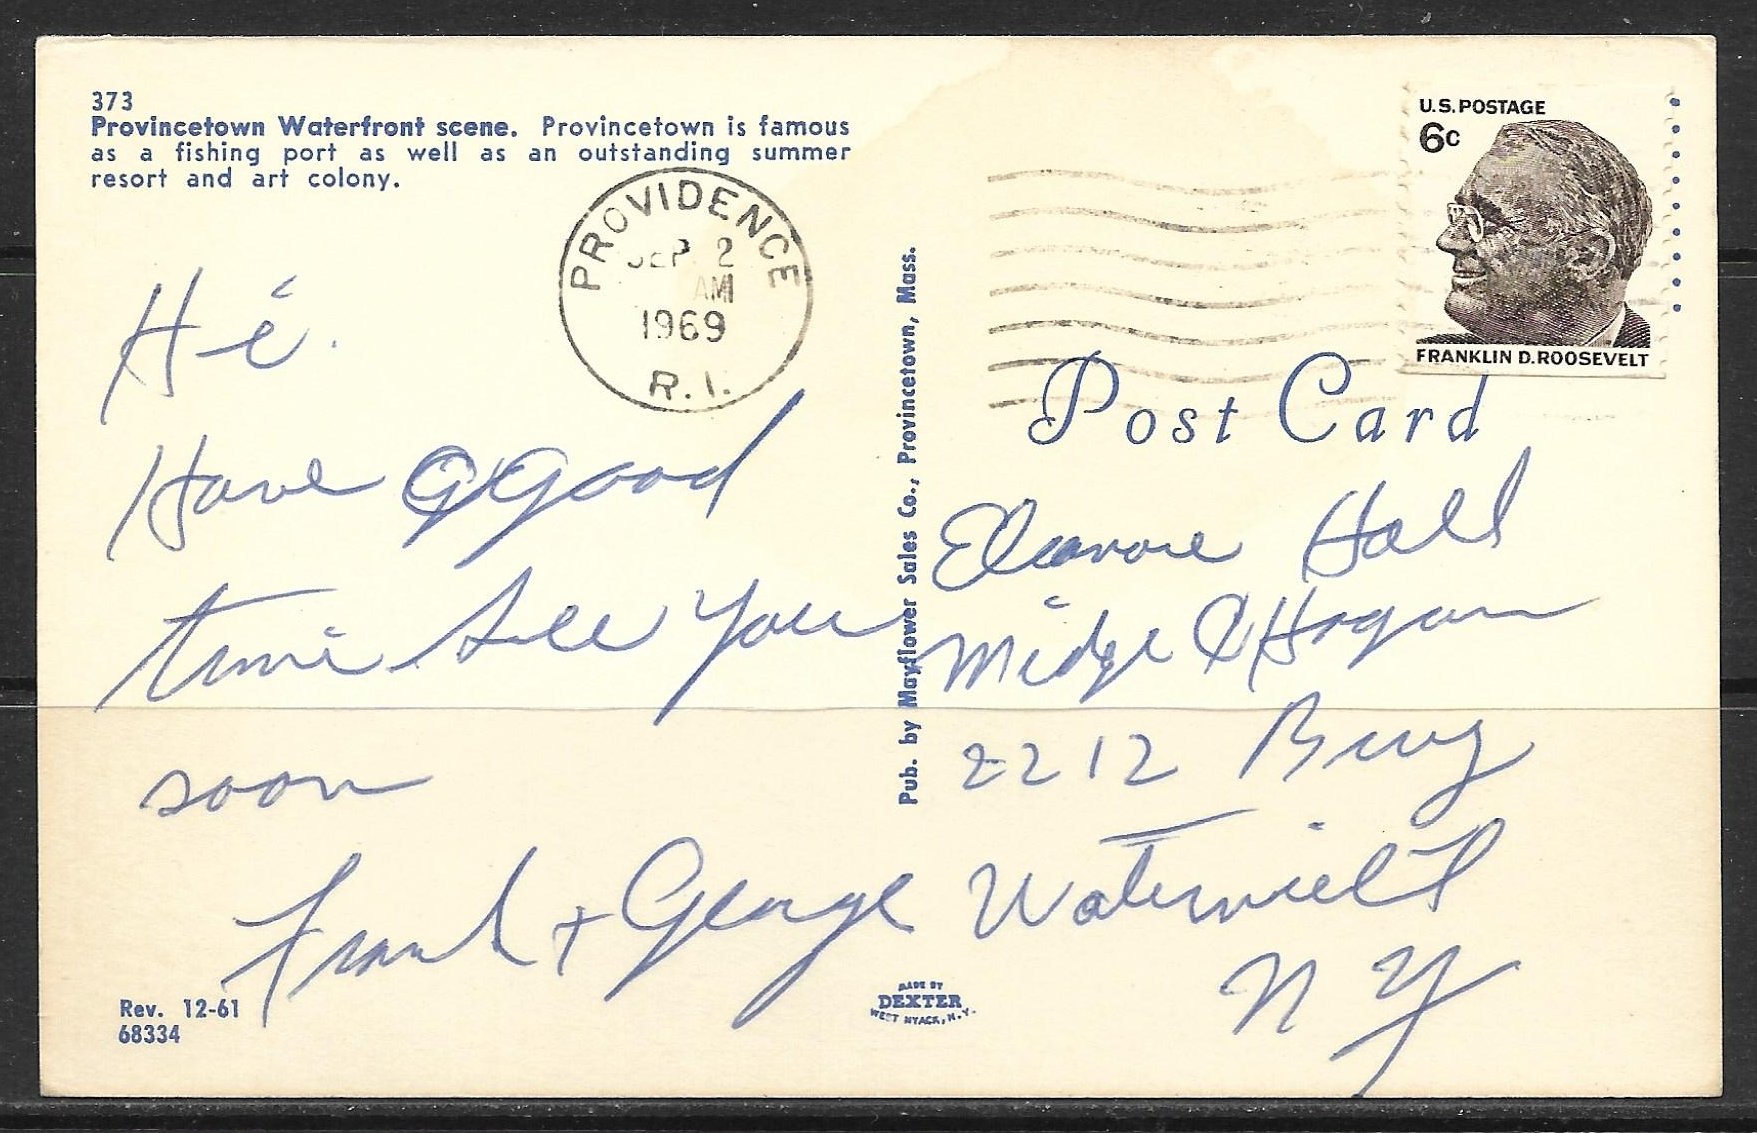 373
Provincetown Waterfront scene. Provincetown is famous
as a fishing port as well as an outstanding summer
resort and art colony.
PROVIDENCE
SEP 2
AM
1969
R.I.
U.S. POSTAGE
6c
FRANKLIN D. ROOSEVELT
Post Card
Hi.
Have a Good
time see you
soon
Frank + George
Pub. by Mayflower Sales Co., Provincetown, Mass.
Eleanore Hall
Midge & Hogan
2212
Watervielt
NY
Rev. 12-61
68334
MADE BY
DEXTER
WEST NYACK, N.Y.